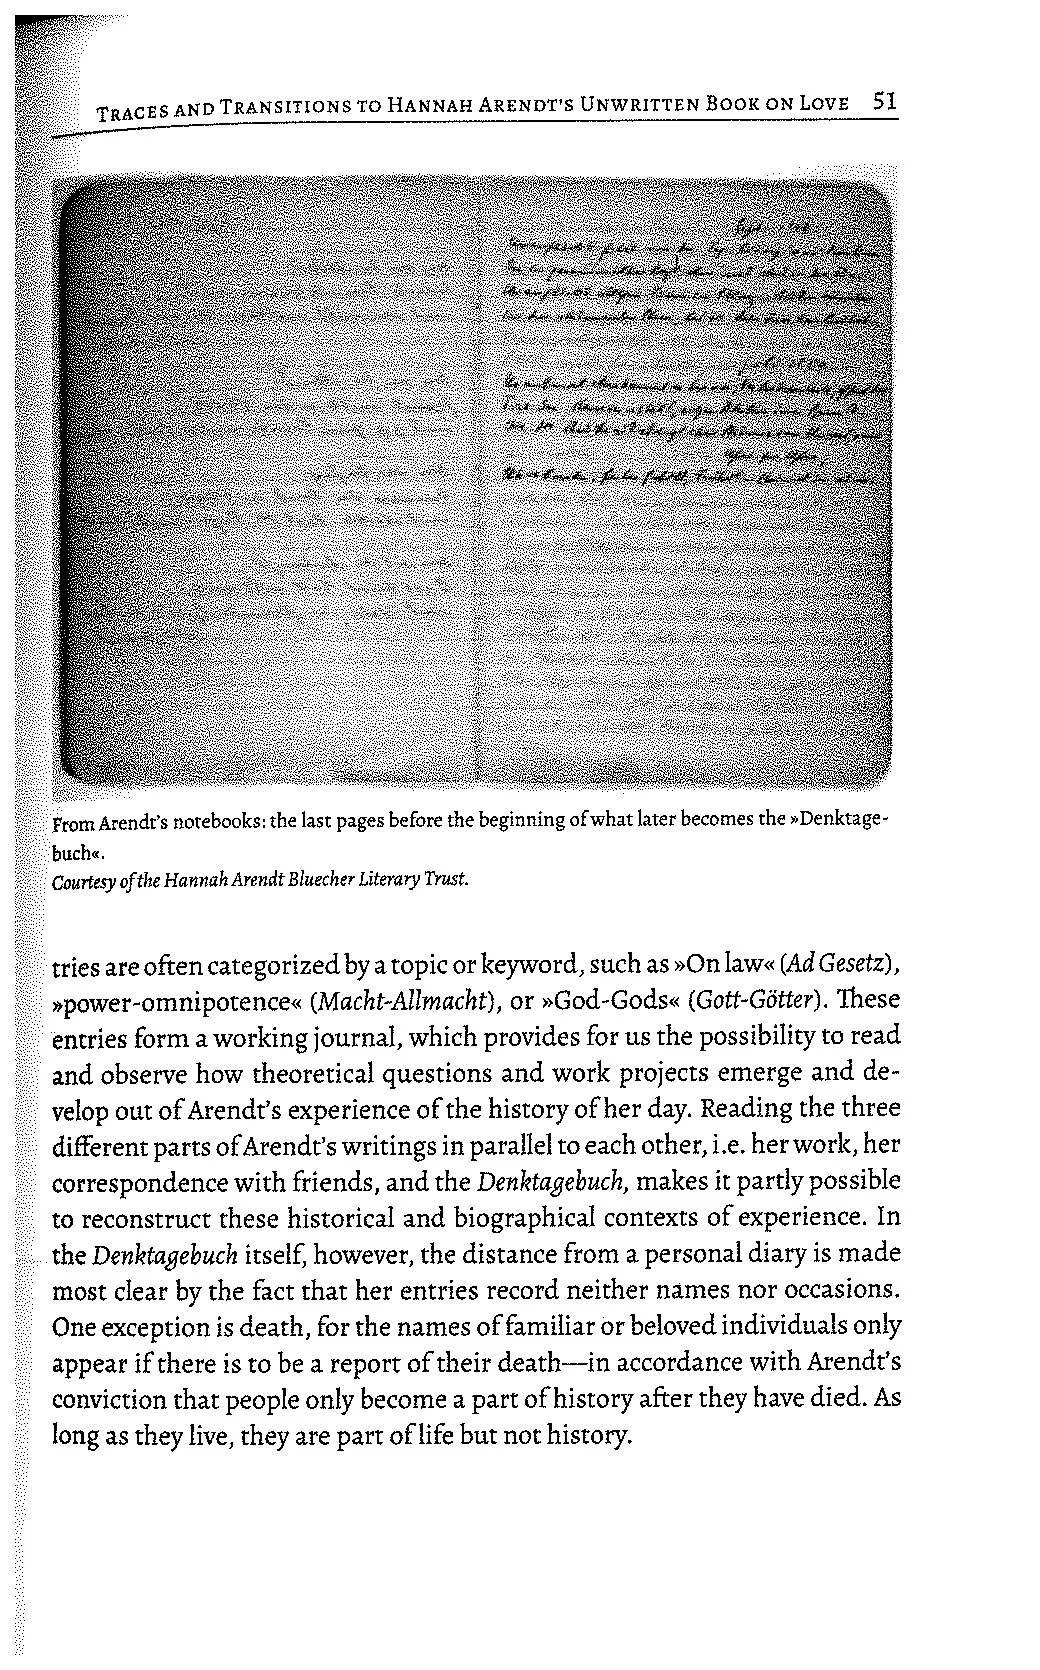 TRACES AND TRANSITIONS TO HANNAH ARENDT'S UNWRITTEN BOOK ON LOVE 51
From Arendt's notebooks: the last pages before the beginning of what later becomes the »Denktage-
buch«.
Courtesy of the Hannah Arendt Bluecher Literary Trust.
tries are often categorized by a topic or keyword, such as »On law« (Ad Gesetz),
»power-omnipotence« (Macht-Allmacht), or »God-Gods« (Gott-Götter). These
entries form a working journal, which provides for us the possibility to read
and observe how theoretical questions and work projects emerge and de-
velop out of Arendt's experience of the history of her day. Reading the three
different parts of Arendt's writings in parallel to each other, i.e. her work, her
correspondence with friends, and the Denktagebuch, makes it partly possible
to reconstruct these historical and biographical contexts of experience. In
the Denktagebuch itself, however, the distance from a personal diary is made
most clear by the fact that her entries record neither names nor occasions.
One exception is death, for the names of familiar or beloved individuals only
appear if there is to be a report of their death—in accordance with Arendt's
conviction that people only become a part of history after they have died. As
long as they live, they are part of life but not history.